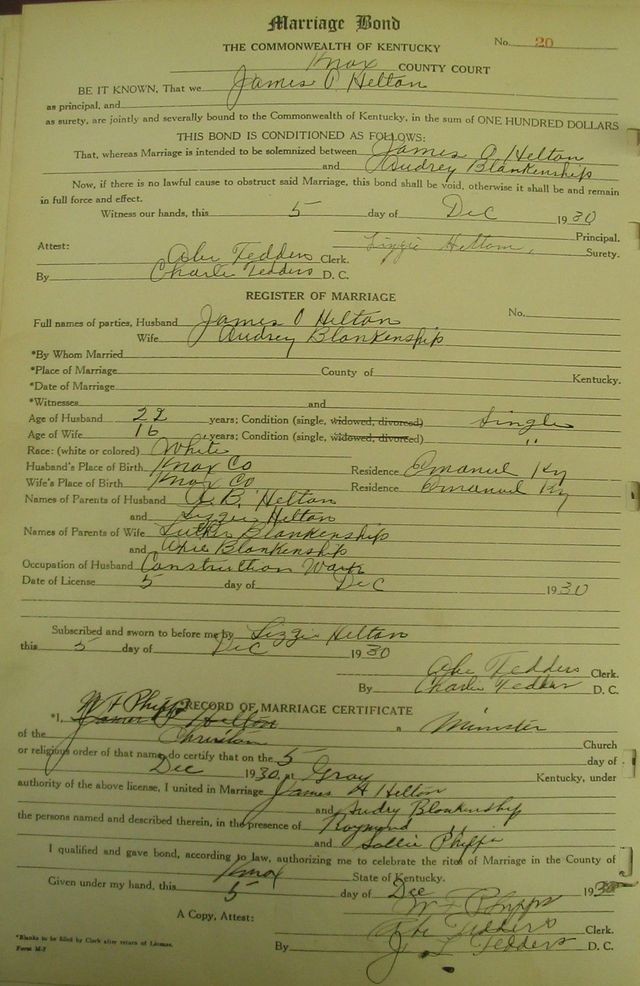 Marriage Bond
No. 20
THE COMMONWEALTH OF KENTUCKY
Knox COUNTY COURT
BE IT KNOWN, That we James O Helton
as principal, and
as surety, are jointly and severally bound to the Commonwealth of Kentucky, in the sum of ONE HUNDRED DOLLARS
THIS BOND IS CONDITIONED AS FOLLOWS:
That, whereas Marriage is intended to be solemnized between James O Helton
and Audrey Blankenship
Now, if there is no lawful cause to obstruct said Marriage, this bond shall be void, otherwise it shall be and remain
in full force and effect.
Witness our hands, this 5 day of Dec 1930
Principal.
Attest: Lizzie Helton, Surety.
Abe Tedders Clerk.
By Charlie Tedders D. C.
REGISTER OF MARRIAGE
No.
Full names of parties, Husband James O Helton
Wife Audrey Blankenship
*By Whom Married
*Place of Marriage County of Kentucky.
*Date of Marriage
*Witnesses and
Age of Husband 22 years; Condition (single, widowed, divorced) Single
Age of Wife 16 years; Condition (single, widowed, divorced) "
Race: (white or colored) White
Husband's Place of Birth Knox Co Residence Emanuel Ky
Wife's Place of Birth Knox Co Residence Emanuel Ky
Names of Parents of Husband B. Helton
and Lizzie Helton
Names of Parents of Wife Luther Blankenship
and Blankenship
Occupation of Husband Construction Work
Date of License 5 day of Dec 1930
Subscribed and sworn to before me by Lizzie Helton
this 5 day of Dec 1930
Abe Tedders Clerk.
By Charlie Tedders D. C.
RECORD OF MARRIAGE CERTIFICATE
*I, W F Phipps James Helton a Minister
of the Christian Church
or religious order of that name, do certify that on the 5 day of
Dec 1930, at Gray Kentucky, under
authority of the above license, I united in Marriage James H Helton
and Audry Blankenship
the persons named and described therein, in the presence of Raymond "
and Sallie Phipps
I qualified and gave bond, according to law, authorizing me to celebrate the rites of Marriage in the County of
Knox State of Kentucky.
Given under my hand, this 5 day of Dec 1930
W F Phipps
A Copy, Attest: Abe Tedders Clerk.
By J. L Tedders D. C.
*Blanks to be filled by Clerk after return of License.
Form M-7